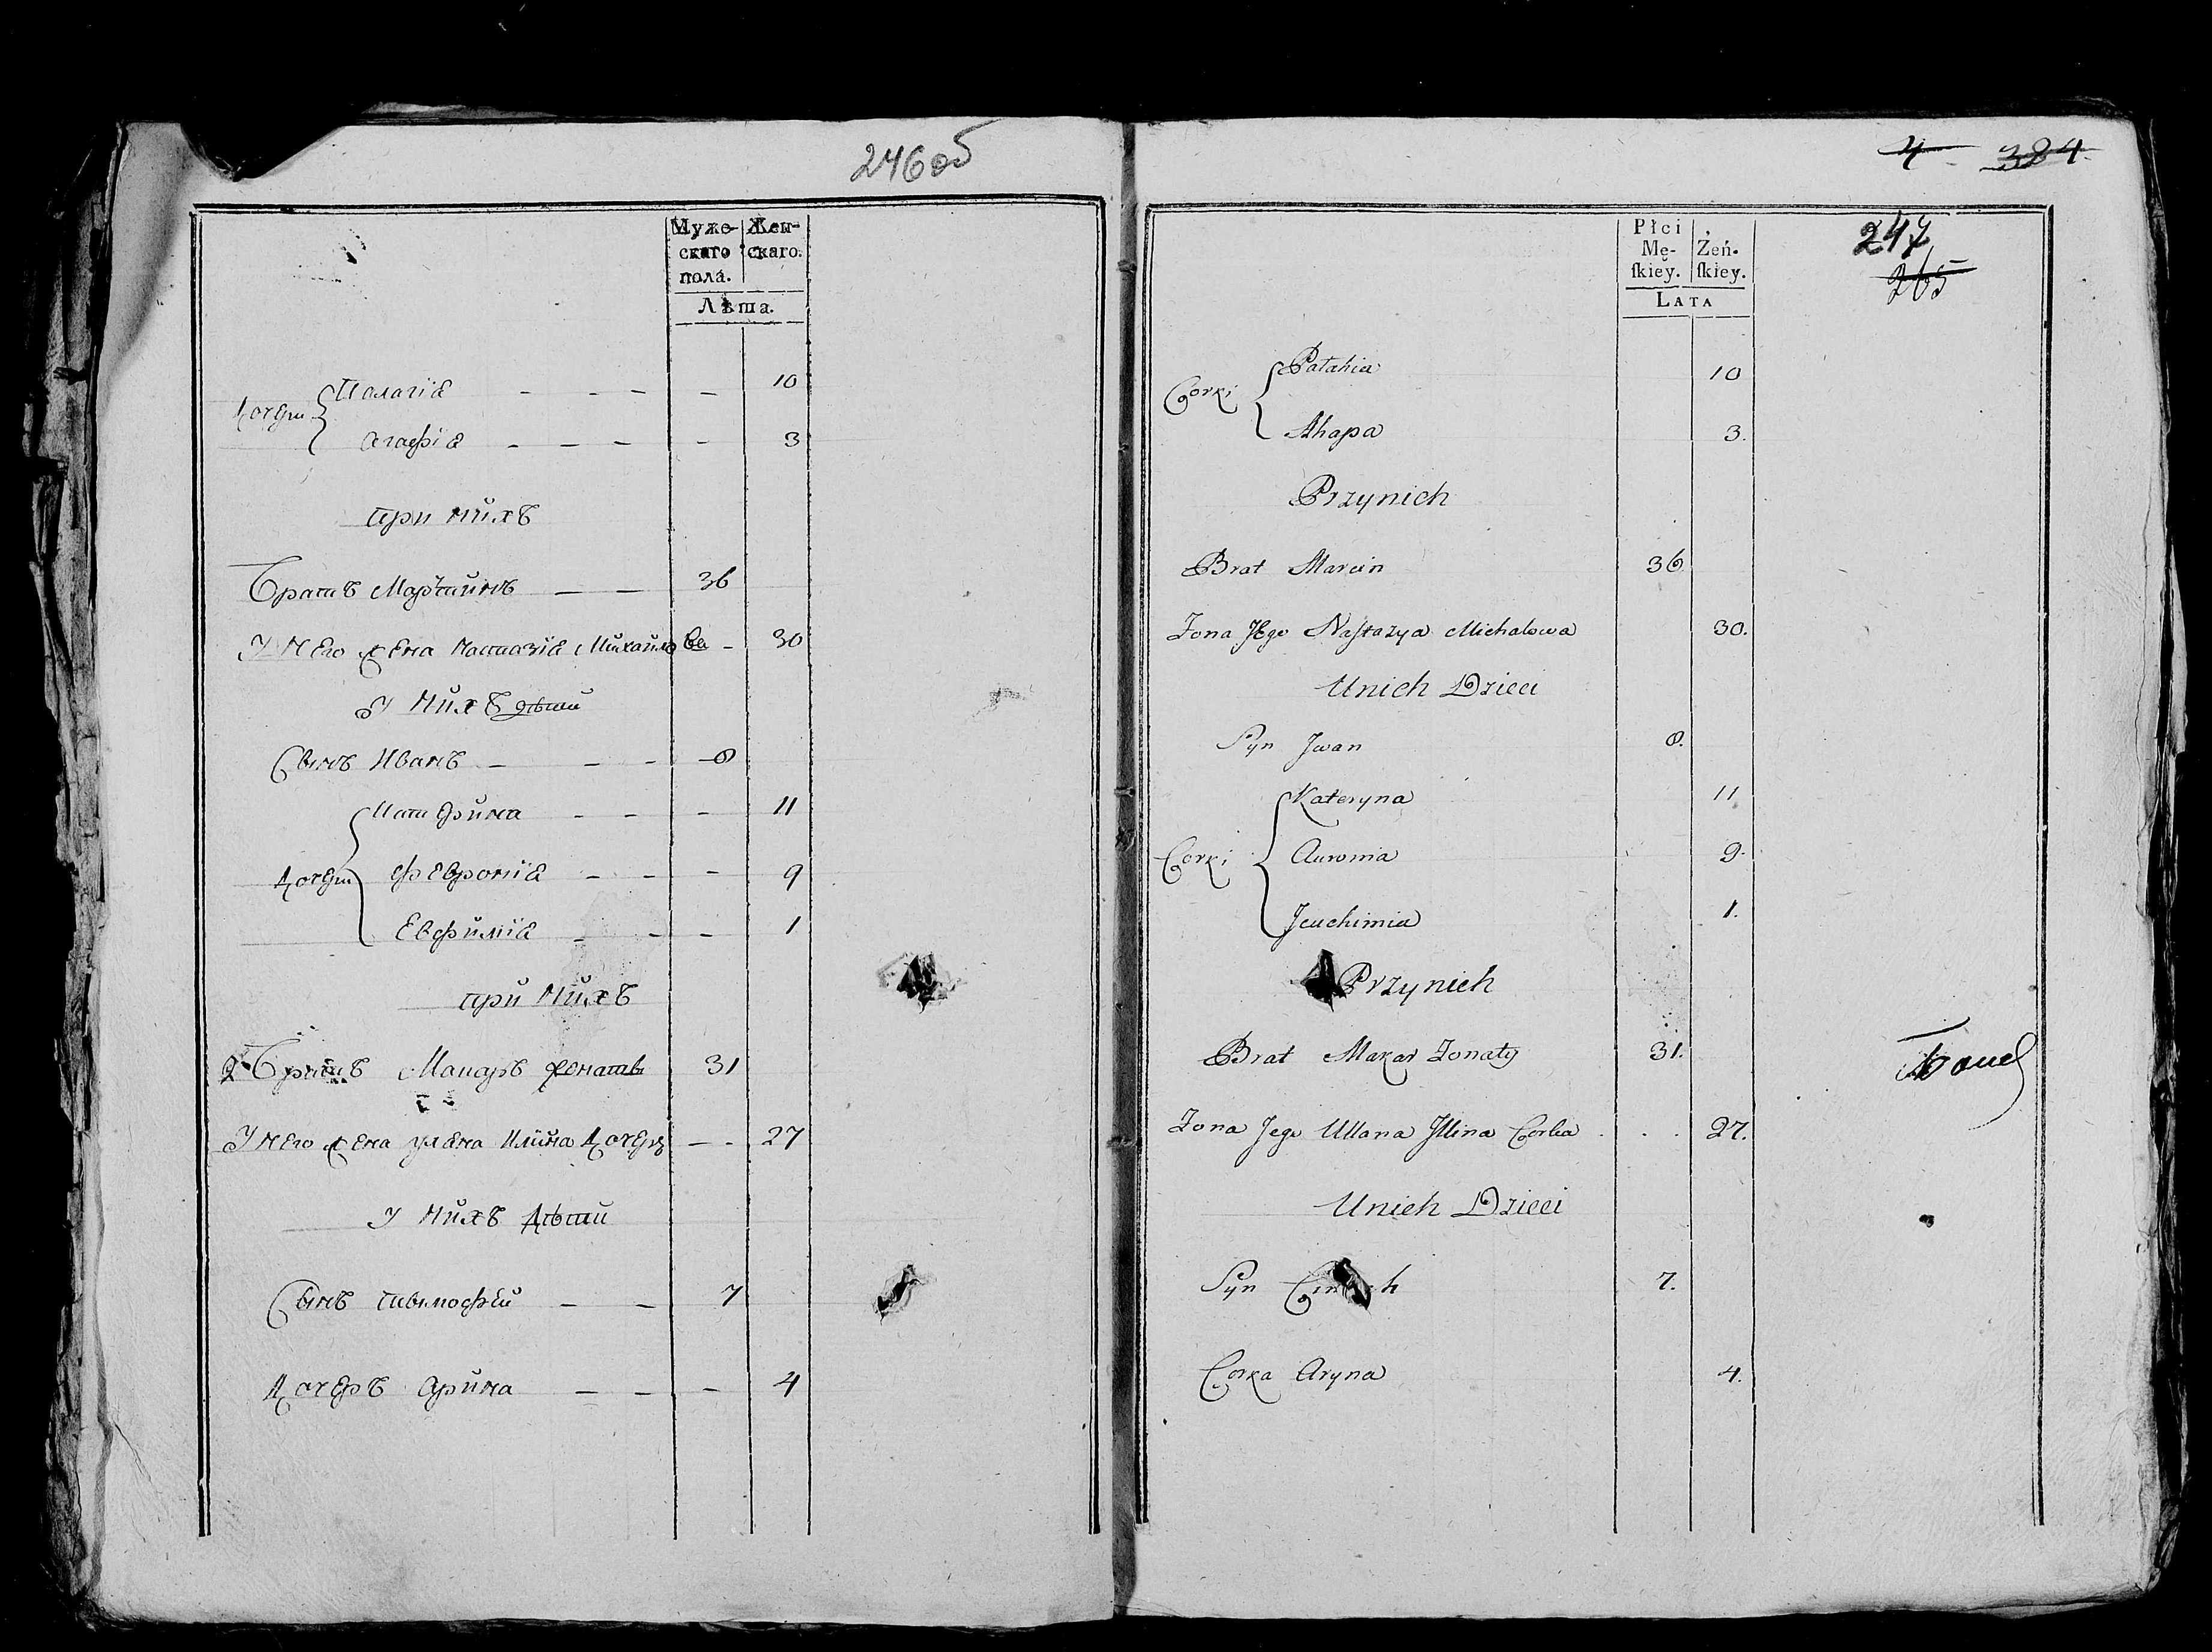 246об
Муже-
скаго
пола.
Жен-
скаго.
Лѣта.
Дочери
Палагія - - - - 10
Агафія - - - - 3
при нихъ
Братъ Мартинъ — — 36
У него жена Настазія Михайлова - 30
У нихъ дѣти
Сынъ Иванъ — - - 8
Дочери
Катерина - - - 11
Февронія - - - 9
Евфимія - - - 1
при нихъ
2 Братъ Макаръ женатъ 31
У него жена Уляна Илина Дочерь — - 27
У нихъ Дѣти
Сынъ Тимофей — — 7
Дочеръ Арина — — - 4
4 384
Płci
Mę-
ſkiey.
Żeń-
ſkiey.
Lata
247
265
Corki
Patahia 10
Ahapa 3.
Przynich
Brat Marcin 36
Zona Jego Naſtazya Michalowa 30.
Unich Dzieci
Syn Jwan 8.
Corki
Kateryna 11
Auronia 9.
Jeuchimia 1.
Przynich
Brat Makar Zonaty 31.
Zona Jego Ullana Jllina Corka . . . 27.
Unich Dzieci
Syn 7.
Corka Aryna 4.